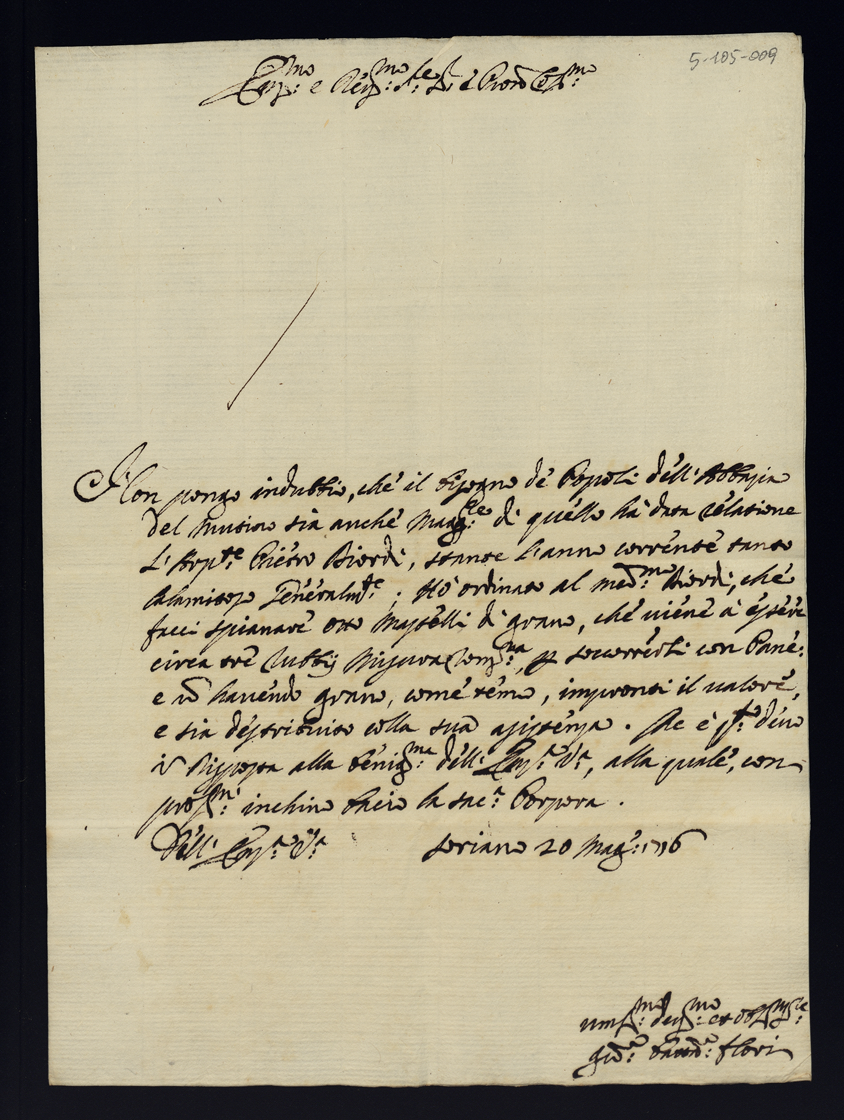 5-105-009
Em.mo e Rev.mo Sig.re Sig.r e Pron Col.mo
Non pongo in dubbio, ché il bisogno dé Popoli déll'Abbazia
del Mutino sia anché magg.re di quéllo hà data rélatione
L'Arp.te Piétro Biordi, stante l'anno corrénté tanto
Calamitoso Généralm.te; Hò ordinato al med.mo Biordi, ché
facci spianaré otto Mastélli di grano, ché viéné à ésséré
circa tré Rubbij Misura Rom.na, p soccorrérli con Pané:
e nō havéndo grano, comé témo, impronti il valoré,
e sia déstribuito colla sua assisténza. Ré è q.to dévo
in Risposta alla bénig.ma déll'Em.a V.a, alla qualé, con
prof.mo inchino bacio la sac.a Porpora.
Déll'Em.a V.a Soriano 20 Mag.o 1716
Um.mo dev.mo et obblig.mo S.re
Gio. Flori